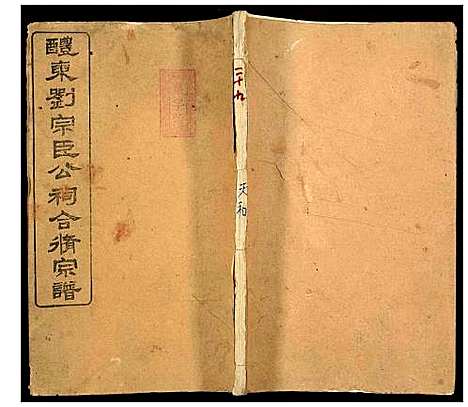 醴東劉宗臣公祠合脩宗譜
二十九
天和